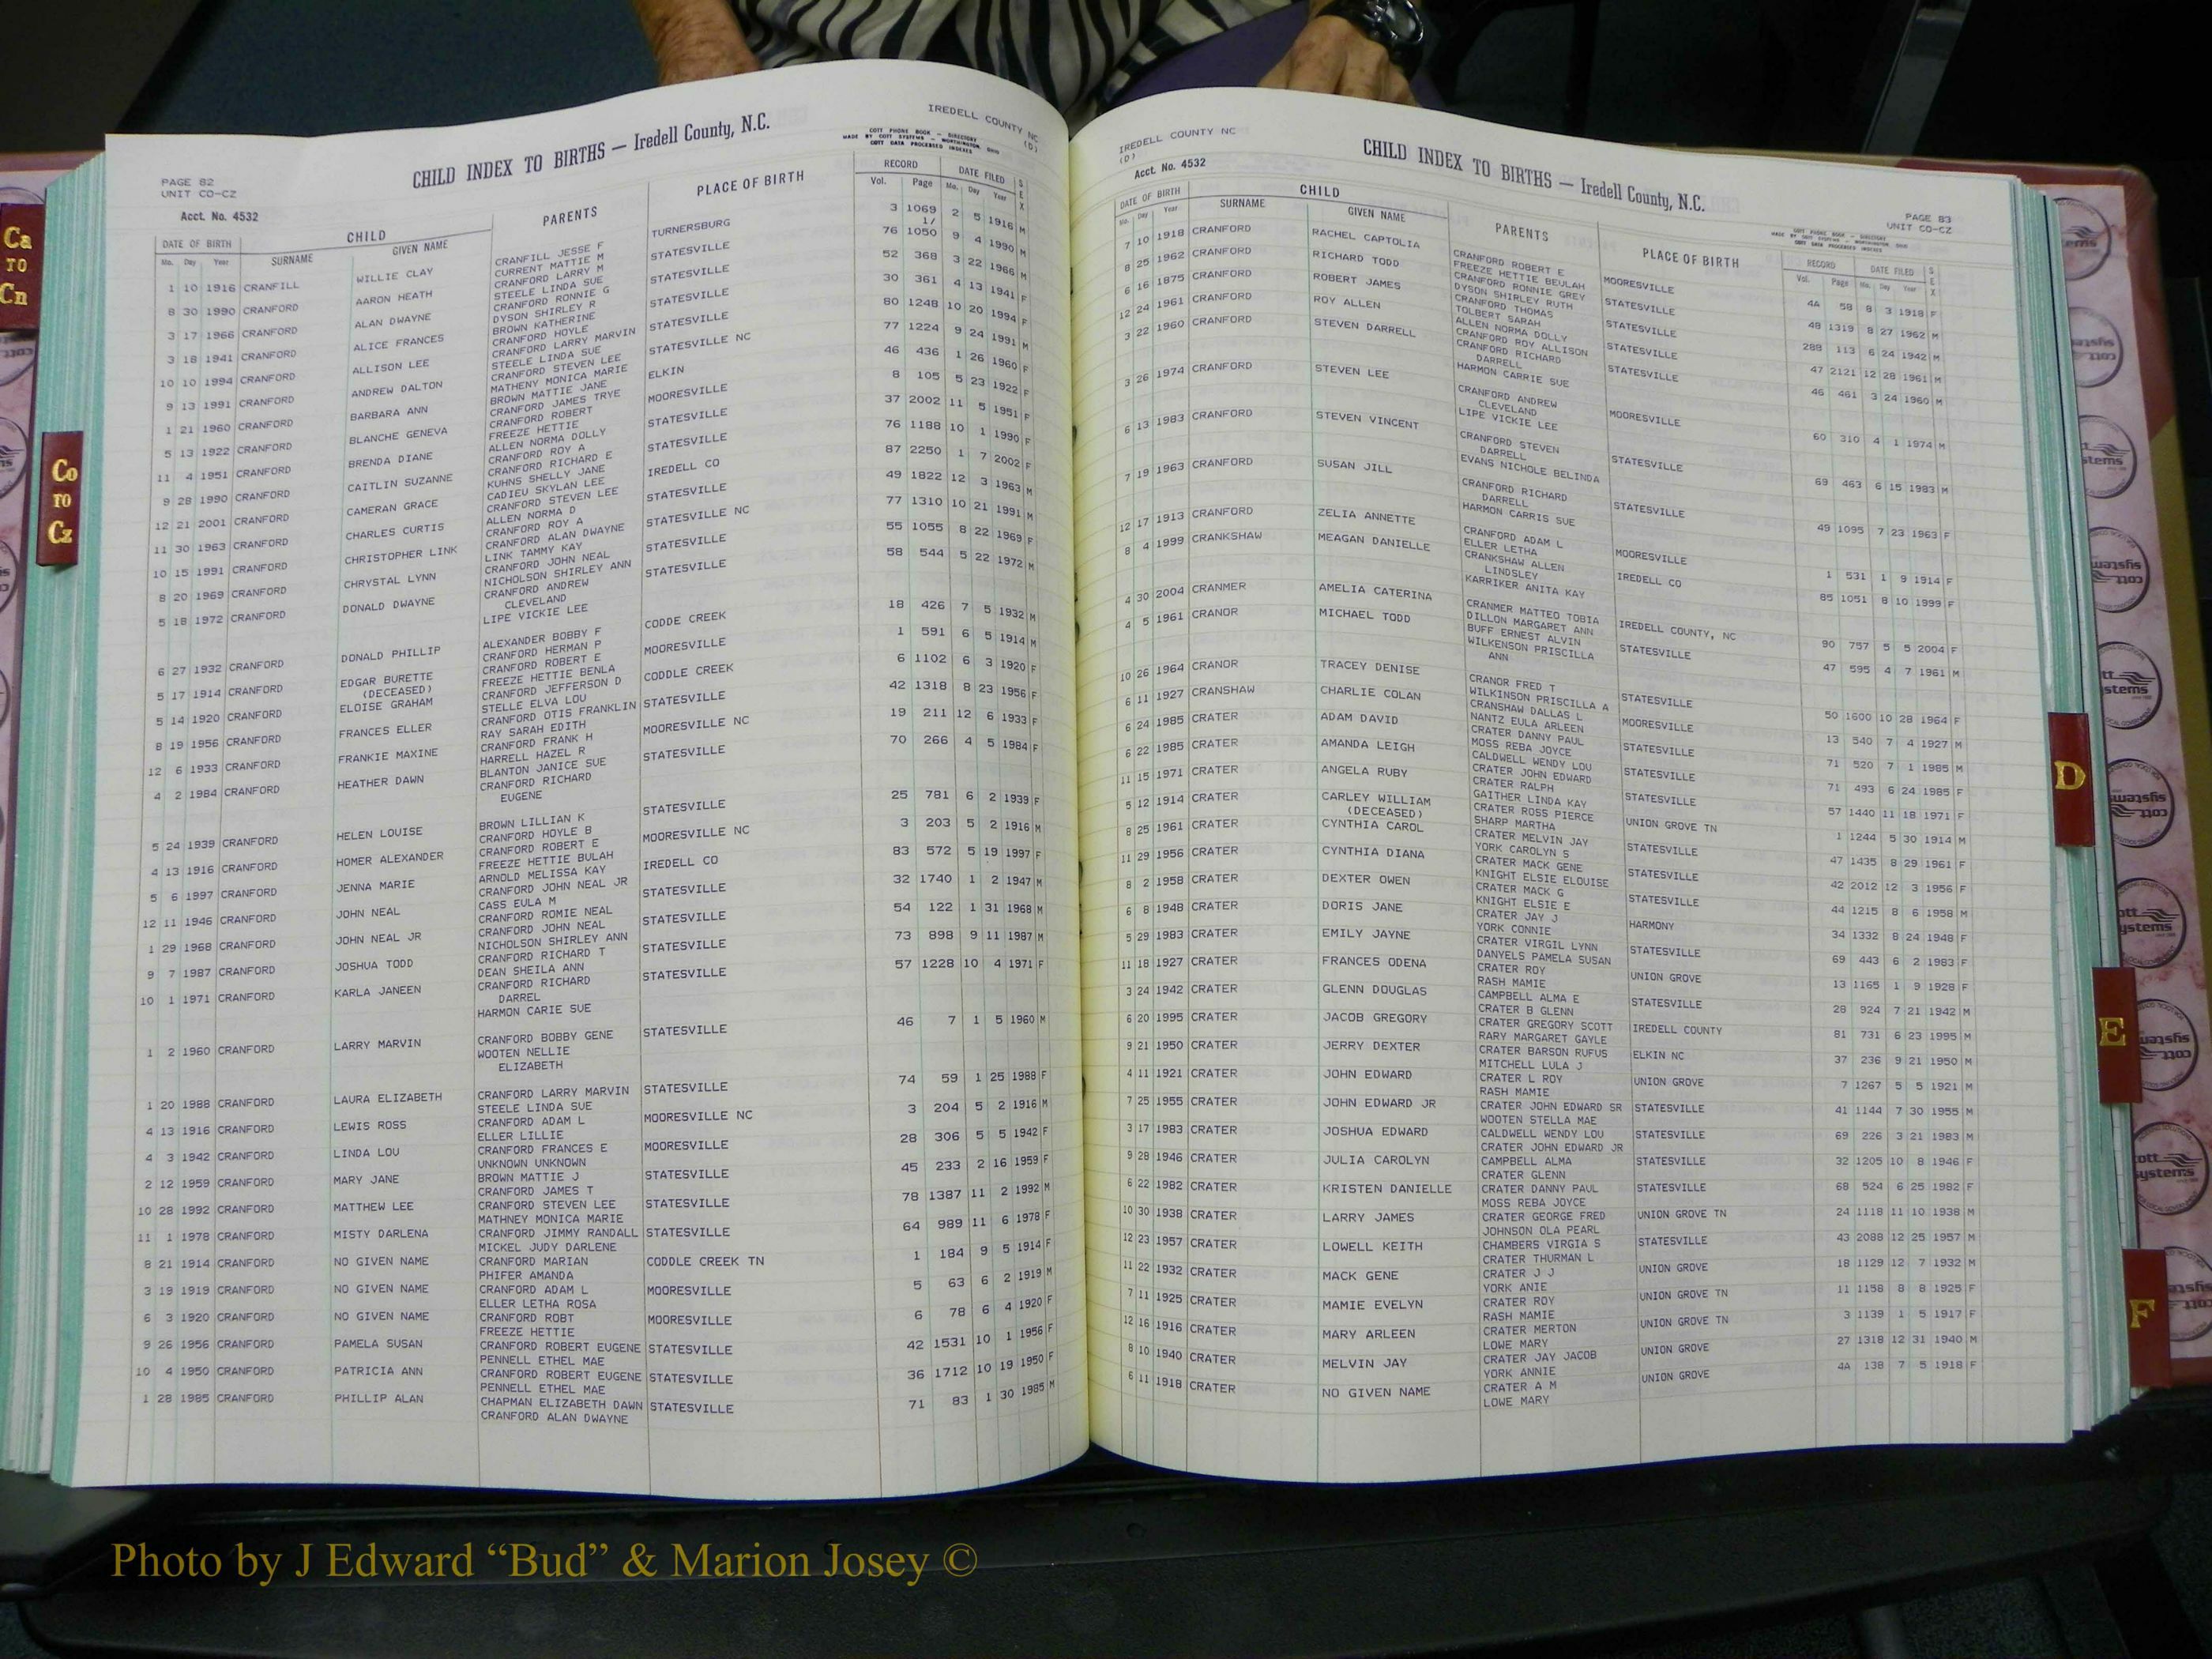 IREDELL COUNTY NC
(D)
COTT PHONE BOOK — DIRECTORY
MADE BY COTT SYSTEMS — WORTHINGTON, OHIO
COTT DATA PROCESSED INDEXES
CHILD INDEX TO BIRTHS — Iredell County, N.C.
PAGE 82
UNIT CO-CZ
Acct. No. 4532
DATE OF BIRTH CHILD PARENTS PLACE OF BIRTH RECORD DATE FILED SEX
Mo. Day Year SURNAME GIVEN NAME Vol. Page Mo. Day Year
1 10 1916 CRANFILL WILLIE CLAY CRANFILL JESSE F TURNERSBURG 3 1069 2 5 1916 M
CURRENT MATTIE M 1/
8 30 1990 CRANFORD AARON HEATH CRANFORD LARRY M STATESVILLE 76 1050 9 4 1990 M
STEELE LINDA SUE
3 17 1966 CRANFORD ALAN DWAYNE CRANFORD RONNIE G STATESVILLE 52 368 3 22 1966 M
DYSON SHIRLEY R
3 18 1941 CRANFORD ALICE FRANCES BROWN KATHERINE STATESVILLE 30 361 4 13 1941 F
CRANFORD HOYLE
10 10 1994 CRANFORD ALLISON LEE CRANFORD LARRY MARVIN STATESVILLE 80 1248 10 20 1994 F
STEELE LINDA SUE
9 13 1991 CRANFORD ANDREW DALTON CRANFORD STEVEN LEE STATESVILLE NC 77 1224 9 24 1991 M
MATHENY MONICA MARIE
1 21 1960 CRANFORD BARBARA ANN BROWN MATTIE JANE ELKIN 46 436 1 26 1960 F
CRANFORD JAMES TRYE
5 13 1922 CRANFORD BLANCHE GENEVA CRANFORD ROBERT MOORESVILLE 8 105 5 23 1922 F
FREEZE HETTIE
11 4 1951 CRANFORD BRENDA DIANE ALLEN NORMA DOLLY STATESVILLE 37 2002 11 5 1951 F
CRANFORD ROY A
9 28 1990 CRANFORD CAITLIN SUZANNE CRANFORD RICHARD E STATESVILLE 76 1188 10 1 1990 F
KUHNS SHELLY JANE
12 21 2001 CRANFORD CAMERAN GRACE CADIEU SKYLAN LEE IREDELL CO 87 2250 1 7 2002 F
CRANFORD STEVEN LEE
11 30 1963 CRANFORD CHARLES CURTIS ALLEN NORMA D STATESVILLE 49 1822 12 3 1963 M
CRANFORD ROY A
10 15 1991 CRANFORD CHRISTOPHER LINK CRANFORD ALAN DWAYNE STATESVILLE NC 77 1310 10 21 1991 M
LINK TAMMY KAY
8 20 1969 CRANFORD CHRYSTAL LYNN CRANFORD JOHN NEAL STATESVILLE 55 1055 8 22 1969 F
NICHOLSON SHIRLEY ANN
5 18 1972 CRANFORD DONALD DWAYNE CRANFORD ANDREW STATESVILLE 58 544 5 22 1972 M
CLEVELAND
LIPE VICKIE LEE
6 27 1932 CRANFORD DONALD PHILLIP ALEXANDER BOBBY F CODDE CREEK 18 426 7 5 1932 M
CRANFORD HERMAN P
5 17 1914 CRANFORD EDGAR BURETTE CRANFORD ROBERT E MOORESVILLE 1 591 6 5 1914 M
(DECEASED) FREEZE HETTIE BENLA
5 14 1920 CRANFORD ELOISE GRAHAM CRANFORD JEFFERSON D CODDLE CREEK 6 1102 6 3 1920 F
STELLE ELVA LOU
8 19 1956 CRANFORD FRANCES ELLER CRANFORD OTIS FRANKLIN STATESVILLE 42 1318 8 23 1956 F
RAY SARAH EDITH
12 6 1933 CRANFORD FRANKIE MAXINE CRANFORD FRANK H MOORESVILLE NC 19 211 12 6 1933 F
HARRELL HAZEL R
4 2 1984 CRANFORD HEATHER DAWN BLANTON JANICE SUE STATESVILLE 70 266 4 5 1984 F
CRANFORD RICHARD
EUGENE
5 24 1939 CRANFORD HELEN LOUISE BROWN LILLIAN K STATESVILLE 25 781 6 2 1939 F
CRANFORD HOYLE B
4 13 1916 CRANFORD HOMER ALEXANDER CRANFORD ROBERT E MOORESVILLE NC 3 203 5 2 1916 M
FREEZE HETTIE BULAH
5 6 1997 CRANFORD JENNA MARIE ARNOLD MELISSA KAY IREDELL CO 83 572 5 19 1997 F
CRANFORD JOHN NEAL JR
12 11 1946 CRANFORD JOHN NEAL CASS EULA M STATESVILLE 32 1740 1 2 1947 M
CRANFORD ROMIE NEAL
1 29 1968 CRANFORD JOHN NEAL JR CRANFORD JOHN NEAL STATESVILLE 54 122 1 31 1968 M
NICHOLSON SHIRLEY ANN
9 7 1987 CRANFORD JOSHUA TODD CRANFORD RICHARD T STATESVILLE 73 898 9 11 1987 M
DEAN SHEILA ANN
10 1 1971 CRANFORD KARLA JANEEN CRANFORD RICHARD STATESVILLE 57 1228 10 4 1971 F
DARREL
HARMON CARIE SUE
1 2 1960 CRANFORD LARRY MARVIN CRANFORD BOBBY GENE STATESVILLE 46 7 1 5 1960 M
WOOTEN NELLIE
ELIZABETH
1 20 1988 CRANFORD LAURA ELIZABETH CRANFORD LARRY MARVIN STATESVILLE 74 59 1 25 1988 F
STEELE LINDA SUE
4 13 1916 CRANFORD LEWIS ROSS CRANFORD ADAM L MOORESVILLE NC 3 204 5 2 1916 M
ELLER LILLIE
4 3 1942 CRANFORD LINDA LOU CRANFORD FRANCES E MOORESVILLE 28 306 5 5 1942 F
UNKNOWN UNKNOWN
2 12 1959 CRANFORD MARY JANE BROWN MATTIE J STATESVILLE 45 233 2 16 1959 F
CRANFORD JAMES T
10 28 1992 CRANFORD MATTHEW LEE CRANFORD STEVEN LEE STATESVILLE 78 1387 11 2 1992 M
MATHNEY MONICA MARIE
11 1 1978 CRANFORD MISTY DARLENA CRANFORD JIMMY RANDALL STATESVILLE 64 989 11 6 1978 F
MICKEL JUDY DARLENE
8 21 1914 CRANFORD NO GIVEN NAME CRANFORD MARIAN CODDLE CREEK TN 1 184 9 5 1914 F
PHIFER AMANDA
3 19 1919 CRANFORD NO GIVEN NAME CRANFORD ADAM L MOORESVILLE 5 63 6 2 1919 M
ELLER LETHA ROSA
6 3 1920 CRANFORD NO GIVEN NAME CRANFORD ROBT MOORESVILLE 6 78 6 4 1920 F
FREEZE HETTIE
9 26 1956 CRANFORD PAMELA SUSAN CRANFORD ROBERT EUGENE STATESVILLE 42 1531 10 1 1956 F
PENNELL ETHEL MAE
10 4 1950 CRANFORD PATRICIA ANN CRANFORD ROBERT EUGENE STATESVILLE 36 1712 10 19 1950 F
PENNELL ETHEL MAE
1 28 1985 CRANFORD PHILLIP ALAN CHAPMAN ELIZABETH DAWN STATESVILLE 71 83 1 30 1985 M
CRANFORD ALAN DWAYNE
IREDELL COUNTY NC
(D)
Acct. No. 4532
CHILD INDEX TO BIRTHS — Iredell County, N.C.
PAGE 83
UNIT CO-CZ
COTT PHONE BOOK — DIRECTORY
MADE BY COTT SYSTEMS — WORTHINGTON, OHIO
COTT DATA PROCESSED INDEXES
DATE OF BIRTH CHILD PARENTS PLACE OF BIRTH RECORD DATE FILED SEX
Mo. Day Year SURNAME GIVEN NAME Vol. Page Mo. Day Year
7 10 1918 CRANFORD RACHEL CAPTOLIA CRANFORD ROBERT E MOORESVILLE 4A 58 8 3 1918 F
FREEZE HETTIE BEULAH
8 25 1962 CRANFORD RICHARD TODD CRANFORD RONNIE GREY STATESVILLE 48 1319 8 27 1962 M
DYSON SHIRLEY RUTH
6 16 1875 CRANFORD ROBERT JAMES CRANFORD THOMAS STATESVILLE 28B 113 6 24 1942 M
TOLBERT SARAH
12 24 1961 CRANFORD ROY ALLEN ALLEN NORMA DOLLY STATESVILLE 47 2121 12 28 1961 M
CRANFORD ROY ALLISON
3 22 1960 CRANFORD STEVEN DARRELL CRANFORD RICHARD STATESVILLE 46 461 3 24 1960 M
DARRELL
HARMON CARRIE SUE
3 26 1974 CRANFORD STEVEN LEE CRANFORD ANDREW MOORESVILLE 60 310 4 1 1974 M
CLEVELAND
LIPE VICKIE LEE
6 13 1983 CRANFORD STEVEN VINCENT CRANFORD STEVEN STATESVILLE 69 463 6 15 1983 M
DARRELL
EVANS NICHOLE BELINDA
7 19 1963 CRANFORD SUSAN JILL CRANFORD RICHARD STATESVILLE 49 1095 7 23 1963 F
DARRELL
HARMON CARRIS SUE
12 17 1913 CRANFORD ZELIA ANNETTE CRANFORD ADAM L MOORESVILLE 1 531 1 9 1914 F
ELLER LETHA
8 4 1999 CRANKSHAW MEAGAN DANIELLE CRANKSHAW ALLEN IREDELL CO 85 1051 8 10 1999 F
LINDSLEY
KARRIKER ANITA KAY
4 30 2004 CRANMER AMELIA CATERINA CRANMER MATTEO TOBIA IREDELL COUNTY, NC 90 757 5 5 2004 F
DILLON MARGARET ANN
4 5 1961 CRANOR MICHAEL TODD BUFF ERNEST ALVIN STATESVILLE 47 595 4 7 1961 M
WILKENSON PRISCILLA
ANN
10 26 1964 CRANOR TRACEY DENISE CRANOR FRED T STATESVILLE 50 1600 10 28 1964 F
WILKINSON PRISCILLA A
6 11 1927 CRANSHAW CHARLIE COLAN CRANSHAW DALLAS L MOORESVILLE 13 540 7 4 1927 M
NANTZ EULA ARLEEN
6 24 1985 CRATER ADAM DAVID CRATER DANNY PAUL STATESVILLE 71 520 7 1 1985 M
MOSS REBA JOYCE
6 22 1985 CRATER AMANDA LEIGH CALDWELL WENDY LOU STATESVILLE 71 493 6 24 1985 F
CRATER JOHN EDWARD
11 15 1971 CRATER ANGELA RUBY CRATER RALPH STATESVILLE 57 1440 11 18 1971 F
GAITHER LINDA KAY
5 12 1914 CRATER CARLEY WILLIAM CRATER ROSS PIERCE UNION GROVE TN 1 1244 5 30 1914 M
(DECEASED) SHARP MARTHA
8 25 1961 CRATER CYNTHIA CAROL CRATER MELVIN JAY STATESVILLE 47 1435 8 29 1961 F
YORK CAROLYN S
11 29 1956 CRATER CYNTHIA DIANA CRATER MACK GENE STATESVILLE 42 2012 12 3 1956 F
KNIGHT ELSIE ELOUISE
8 2 1958 CRATER DEXTER OWEN CRATER MACK G STATESVILLE 44 1215 8 6 1958 M
KNIGHT ELSIE E
6 8 1948 CRATER DORIS JANE CRATER JAY J HARMONY 34 1332 8 24 1948 F
YORK CONNIE
5 29 1983 CRATER EMILY JAYNE CRATER VIRGIL LYNN STATESVILLE 69 443 6 2 1983 F
DANYELS PAMELA SUSAN
11 18 1927 CRATER FRANCES ODENA CRATER ROY UNION GROVE 13 1165 1 9 1928 F
RASH MAMIE
3 24 1942 CRATER GLENN DOUGLAS CAMPBELL ALMA E STATESVILLE 28 924 7 21 1942 M
CRATER B GLENN
6 20 1995 CRATER JACOB GREGORY CRATER GREGORY SCOTT IREDELL COUNTY 81 731 6 23 1995 M
RARY MARGARET GAYLE
9 21 1950 CRATER JERRY DEXTER CRATER BARSON RUFUS ELKIN NC 37 236 9 21 1950 M
MITCHELL LULA J
4 11 1921 CRATER JOHN EDWARD CRATER L ROY UNION GROVE 7 1267 5 5 1921 M
RASH MAMIE
7 25 1955 CRATER JOHN EDWARD JR CRATER JOHN EDWARD SR STATESVILLE 41 1144 7 30 1955 M
WOOTEN STELLA MAE
3 17 1983 CRATER JOSHUA EDWARD CALDWELL WENDY LOU STATESVILLE 69 226 3 21 1983 M
CRATER JOHN EDWARD JR
9 28 1946 CRATER JULIA CAROLYN CAMPBELL ALMA STATESVILLE 32 1205 10 8 1946 F
CRATER GLENN
6 22 1982 CRATER KRISTEN DANIELLE CRATER DANNY PAUL STATESVILLE 68 524 6 25 1982 F
MOSS REBA JOYCE
10 30 1938 CRATER LARRY JAMES CRATER GEORGE FRED UNION GROVE TN 24 1118 11 10 1938 M
JOHNSON OLA PEARL
12 23 1957 CRATER LOWELL KEITH CHAMBERS VIRGIA S STATESVILLE 43 2088 12 25 1957 M
CRATER THURMAN L
11 22 1932 CRATER MACK GENE CRATER J J UNION GROVE 18 1129 12 7 1932 M
YORK ANIE
7 11 1925 CRATER MAMIE EVELYN CRATER ROY UNION GROVE TN 11 1158 8 8 1925 F
RASH MAMIE
12 16 1916 CRATER MARY ARLEEN CRATER MERTON UNION GROVE TN 3 1139 1 5 1917 F
LOWE MARY
8 10 1940 CRATER MELVIN JAY CRATER JAY JACOB UNION GROVE 27 1318 12 31 1940 M
YORK ANNIE
6 11 1918 CRATER NO GIVEN NAME CRATER A M UNION GROVE 4A 138 7 5 1918 F
LOWE MARY
Ca
TO
Cn
Co
TO
Cz
D
E
F
Photo by J Edward “Bud” & Marion Josey ©